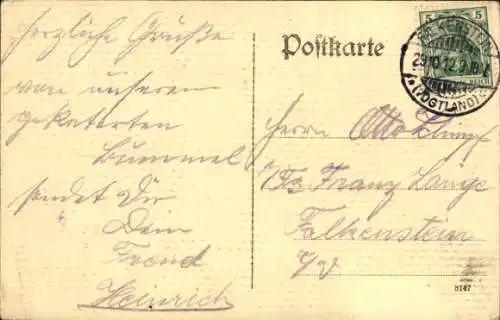 Herzliche Grüße
von unserem
gekaterten
Bummel
sendet Dir
Dein
Freund
Heinrich
Postkarte
5 5
FALKENSTEIN
29.10.12.7
(VOGTLAND)
REICH
Herrn Otto
Franz Lange
Falkenstein
i/V.
8147